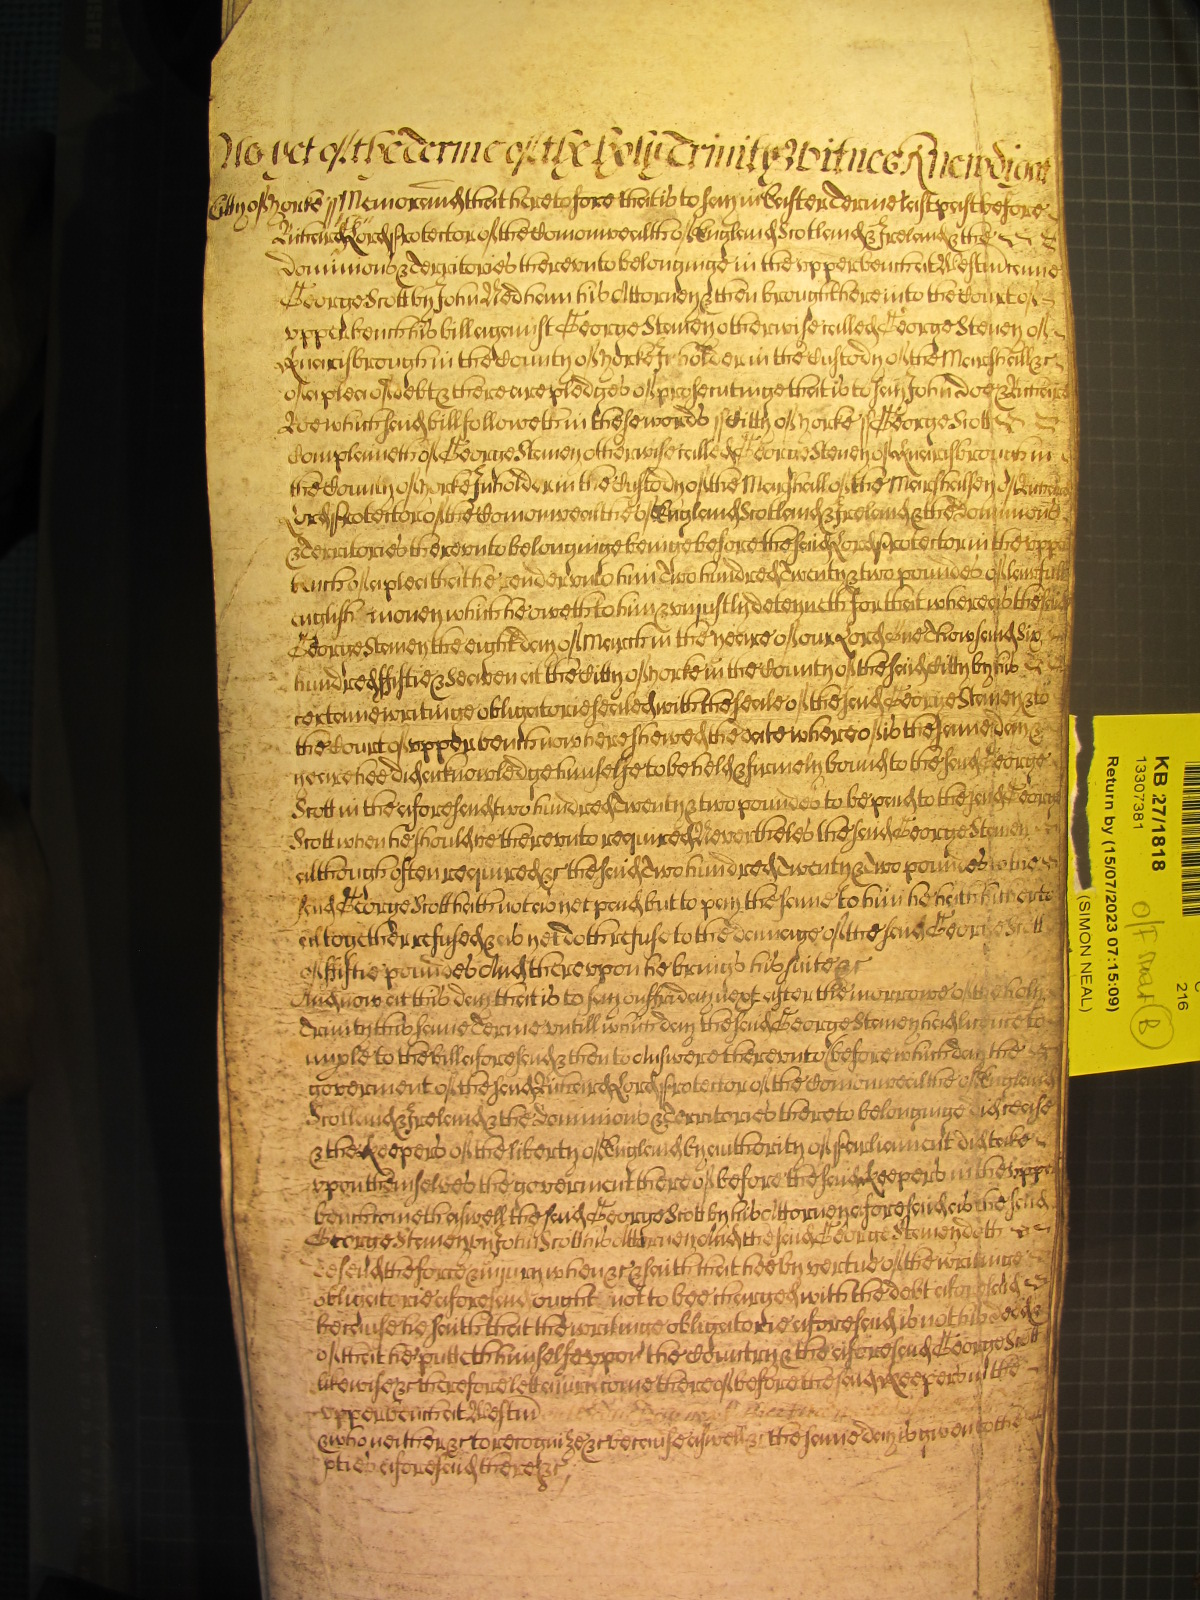 As yet of the Terme of the holy Trinity Witnes R Newdigate
Citty of Yorke ss Memorand that heretofore that is to say in Easter Terme last past before
Richard Lord Protector of the Comonwealth of England Scotland & Ireland & the
dominions & territories therevnto belonginge in the vpper bench at Westminster
George Scott by John Nedham his Attorney & then brought here into the Court of
vpper bench his bill against George Stamey otherwise called George Stevey of
Knaresbrough in the County of Yorke Inholder in the Custody of the Marshall &c
of a plea of debt & there are pledges of prosecutinge that is to say John doe & Richard
Roe which said bill followeth in these words ss Citty of Yorke ss George Scott
Complaineth of George Stamey otherwise called George Stevey of Knaresbrough in
the County of Yorke Inholder in the Custody of the Marshall of the Marshalsey of Richard
Lord Protector of the Comonwealth of England Scotland & Ireland & the dominions
& territories therevnto belonginge beinge before the said Lord Protector in the vpper
bench of a plea that he render vnto him Two hundred Twenty & two poundes of lawfull
english money which he oweth to him & vniustly deteyneth For that whereas the said
George Stamey the eight day of March in the yeare of our Lord One Thousand Six
hundred Fiftie & Seaven at the Citty of Yorke in the County of the said Citty by his
certaine writinge obligatorie sealed with the seale of the said George Stamey & to
the Court of vpper bench now here shewed the date whereof is the same day &
yeare hee did acknowledge himselfe to be held & firmely bound to the said George
Scott in the aforesaid two hundred Twenty & two poundes to be paid to the said George
Scott when he should be therevnto required Neverthelés the said George Stamey
although often required &c the said Two hundred Twenty & Two poundes to the
said George Scott hath not as yet paid but to pay the same to him he hath hitherto
altogether refused & as yet doth refuse to the damage of the said George Scott
of Fiftie poundes And therevpon he brings his suite &c
And now at this day that is to say on Friday next after the morrowe of the holy
Trinity this same Terme vntill which day the said George Stamey had licence to
imple to the bill aforesaid & then to Answere therevnto before which day the
goverment of the said Richard Lord Protector of the Comonwealthe of England
Scotland & Ireland & the dominions & territories thereto belonginge did cease
& the Keepers of the liberty of England by authority of Parliament did take
vpon themselves the goverment thereof before the said Keepers in the vpper
bench come as well the said George Scott by his Attorney aforesaid as the said
George Stamey by John Scott his Attorney And the said George Stamey doth
defend the force & iniury when &c & saith that hee by vertue of the writinge
obligatorie aforesaid ought not to bee charged with the debt aforesaid
because he saith that the writinge obligatorie aforesaid is not his deed &
of that he putteth himselfe vpon the Country & the aforesaid George Scott
likewise &c therefore lett a iury come thereof before the said Keepers in the
vpper bench at Westm
& who neither &c to recognize &c because as well &c the same day is given to the
pties aforesaid there &c
KB 27/1818
13307381
Return by (15/07/2023 07:15:09)
(SIMON NEAL)
216